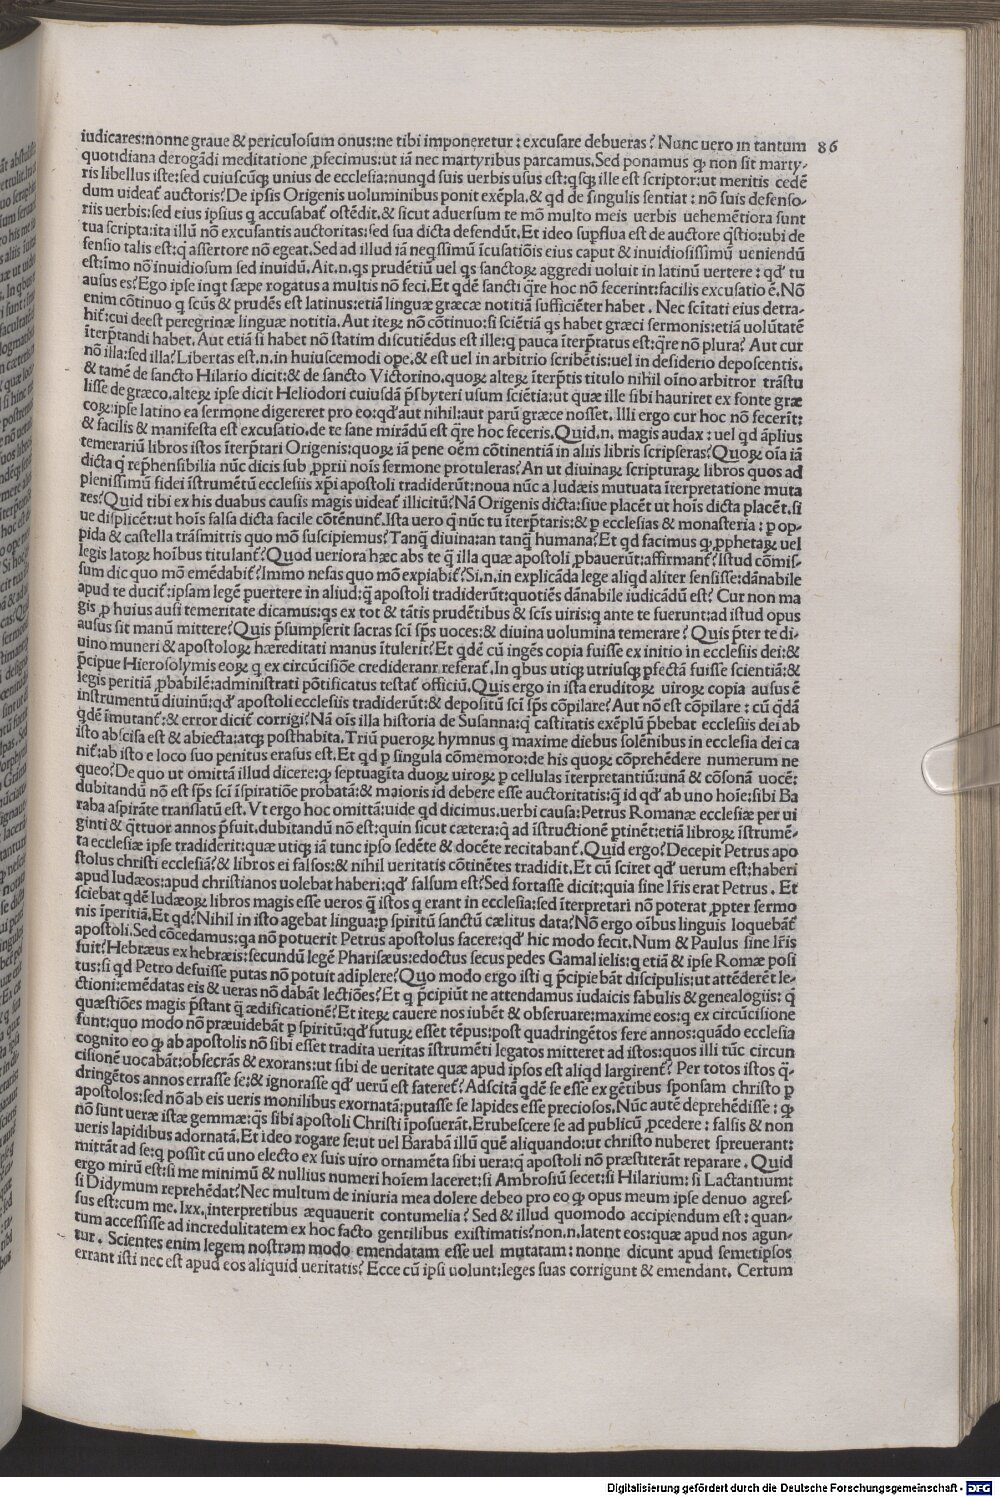 iudicares:nonne graue & periculosum onus:ne tibi imponeretur:excusare debueras? Nunc uero in tantum 86
quotidiana derogādi meditatione ꝓfecimus:ut iā nec martyribus parcamus. Sed ponamus ꝙ non sit marty-
ris libellus iste:sed cuiuscūqꝫ unius de ecclesia:nunqd suis uerbis usus est:qsqꝫ ille est scriptor:ut meritis cedē
dum uideat̄ auctoris? De ipsis Origenis uoluminibus ponit exēpla.& qd de singulis sentiat:nō suis defenso-
riis uerbis:sed eius ipsius q accusabat̄ ostēdit.& sicut aduersum te mō multo meis uerbis uehemētiora sunt
tua scripta:ita illū nō excusantis auctoritas:sed sua dicta defendūt. Et ideo supflua est de auctore q̄stio:ubi de
fensio talis est:q̄ assertore nō egeat. Sed ad illud iā neqssimū īcusatiōis eius caput & inuidiosissimū ueniendū
est:imo nō inuidiosum sed inuidū. Ait.n.qs prudētiū uel qs sanctoꝝ aggredi uoluit in latinū uertere:qd' tu
ausus es? Ego ipse inqt sæpe rogatus a multis nō feci. Et qdē sancti q̄re hoc nō fecerint:facilis excusatio ē. Nō
enim cōtinuo q scūs & prudēs est latinus:etiā linguæ græcæ notitiā sufficiēter habet. Nec scītati eius detra-
hit̄:cui deest peregrinæ linguæ notitia. Aut iteꝝ nō cōtinuo:si sciētiā qs habet græci sermonis:etiā uolūtatē
īterp̄tandi habet. Aut etiā si habet nō statim discutiēdus est ille:q pauca īterp̄tatus est:q̄re nō plura? Aut cur
nō illa:sed illa? Libertas est.n.in huiuscemodi ope.& est uel in arbitrio scribētis:uel in desiderio deposcentis.
& tamē de sancto Hilario dicit:& de sancto Victorino.quoꝝ alteꝝ īterp̄tis titulo nihil oīno arbitror trāstu
lisse de græco.alteꝝ ipse dicit Heliodori cuiusdā p̄sbyteri usum sciētia:ut quæ ille sibi hauriret ex fonte græ
coꝝ:ipse latino ea sermone digereret pro eo:qd'aut nihil:aut parū græce nosset. Illi ergo cur hoc nō fecerīt:
& facilis & manifesta est excusatio.de te sane mirādū est q̄re hoc feceris. Quid.n. magis audax:uel qd āplius
temerariū libros istos īterp̄tari Origenis:quoꝝ iā pene oēm cōtinentiā in aliis libris scripseras? Quoꝝ oīa iā
dicta q̄ rep̄hensibilia nūc dicis sub ꝓprii noīs sermone protuleras? An ut diuinaꝝ scripturaꝝ libros quos ad
plenissimū fidei īstrumētū ecclesiis xp̄i apostoli tradiderūt:noua nūc a Iudæis mutuata īterpretatione muta
res? Quid tibi ex his duabus causis magis uideat̄ illicitū? Nā Origenis dicta:siue placēt ut hoīs dicta placēt.si
ue displicēt:ut hoīs falsa dicta facile cōtēnunt̄. Ista uero q̄ nūc tu īterp̄taris:& p ecclesias & monasteria:p op-
pida & castella trāsmittis quo mō suscipiemus? Tanq̄ diuina:an tanq̄ humana? Et qd facimus ꝙ ꝓphetaꝝ uel
legis latoꝝ hoībus titulant̄? Quod ueriora hæc abs te q̄ illa quæ apostoli ꝓbauerūt:affirmant̄? Istud cōmis-
sum dic quo mō emēdabit̄? Immo nefas quo mō expiabit̄? Si.n.in explicāda lege aliqd aliter sensisse:dānabile
apud te ducit̄:ipsam legē puertere in aliud:q̄ apostoli tradiderūt:quotiēs dānabile iudicādū est? Cur non ma
gis ꝓ huius ausi temeritate dicamus:qs ex tot & tātis prudētibus & scīs uiris:q ante te fuerunt:ad istud opus
ausus sit manū mittere? Quis p̄sumpserit sacras scī sp̄s uoces:& diuina uolumina temerare? Quis p̄ter te di-
uino muneri & apostoloꝝ hæreditati manus ītulerit? Et qdē cū ingēs copia fuisse ex initio in ecclesiis dei:&
p̄cipue Hierosolymis eoꝝ q ex circūcisiōe crediderant referat̄. In qbus utiqꝫ utriusqꝫ pfectā fuisse scientiā:&
legis peritiā ꝓbabilē:administrati pōtificatus testat̄ officiū. Quis ergo in ista eruditoꝝ uiroꝝ copia ausus ē
instrumentū diuinū:qd'apostoli ecclesiis tradiderūt:& depositū scī sp̄s cōpilare? Aut nō est cōpilare:cū q̄dā
qdē īmutant̄:& error dicit̄ corrigi? Nā oīs illa historia de Susanna:q̄ castitatis exēplū p̄bebat ecclesiis dei ab
isto abscisa est & abiecta:atqꝫ posthabita. Triū pueroꝝ hymnus q maxime diebus solēnibus in ecclesia dei ca
nit̄:ab isto e loco suo penitus erasus est. Et qd p singula cōmemoro:de his quoꝝ cōprehēdere numerum ne
queo? De quo ut omittā illud dicere:ꝙ septuagīta duoꝝ uiroꝝ p cellulas īterpretantiū:unā & cōsonā uocē:
dubitandū nō est sp̄s scī īspiratiōe probatā:& maioris id debere esse auctoritatis:q̄ id qd'ab uno hoīe:sibi Ba
raba aspirāte translatū est. Vt ergo hoc omittā:uide qd dicimus.uerbi causa:Petrus Romanæ ecclesiæ per ui
ginti & q̄ttuor annos p̄fuit.dubitandū nō est:quin sicut cætera:q̄ ad īstructionē ptinēt:etiā libroꝝ īstrumē-
ta ecclesiæ ipse tradiderit:quæ utiqꝫ iā tunc ipso sedēte & docēte recitabant̄. Quid ergo? Decepit Petrus apo
stolus christi ecclesiā? & libros ei falsos:& nihil ueritatis cōtinētes tradidit. Et cū sciret qd' uerum est:haberi
apud Iudæos:apud christianos uolebat haberi:qd' falsum est? Sed fortasse dicit:quia sine lr̄is erat Petrus. Et
sciebat qdē Iudæoꝝ libros magis esse ueros q̄ istos q erant in ecclesia:sed īterpretari nō poterat ꝓpter sermo
nis īperitiā. Et qd? Nihil in isto agebat lingua:p spiritū sanctū cælitus data? Nō ergo oībus linguis loquebāt̄
apostoli. Sed cōcedamus:qa nō potuerit Petrus apostolus facere:qd' hic modo fecit. Num & Paulus sine lr̄is
fuit? Hebræus ex hebræis:secundū legē Pharisæus:edoctus secus pedes Gamalielis:q etiā & ipse Romæ posi
tus:si qd Petro defuisse putas nō potuit adiplere? Quo modo ergo isti q p̄cipiebāt discipulis:ut attēderēt le-
ctioni:emēdatas eis & ueras nō dabāt lectiōes? Et q p̄cipiūt ne attendamus iudaicis fabulis & genealogiis:q̄
quæstiōes magis p̄stant q̄ ædificationē? Et iteꝝ cauere nos iubēt & obseruare:maxime eos:q ex circūcisione
sunt:quo modo nō præuidebāt p spiritū:qd'futuꝝ esset tēpus:post quadringētos fere annos:quādo ecclesia
cognito eo ꝙ ab apostolis nō sibi esset tradita ueritas īstrumēti legatos mitteret ad istos:quos illi tūc circun
cisionē uocabāt:obsecrās & exorans:ut sibi de ueritate quæ apud ipsos est aliqd largirent̄? Per totos istos q̄-
dringētos annos errasse se:& ignorasse qd' uerū est fateret̄? Adscitā qdē se esse ex gētibus sponsam christo p
apostolos:sed nō ab eis ueris monilibus exornatā:putasse se lapides esse preciosos. Nūc autē deprehēdisse:ꝙ
nō sunt ueræ istæ gemmæ:q̄s sibi apostoli Christi īposuerāt. Erubescere se ad publicū ꝓcedere:falsis & non
ueris lapidibus adornatā. Et ideo rogare se:ut uel Barabā illū quē aliquando:ut christo nuberet spreuerant:
mittāt ad se:q possit cū uno electo ex suis uiro ornamēta sibi uera:q̄ apostoli nō præstiterāt reparare. Quid
ergo mirū est:si me minimū & nullius numeri hoīem laceret:si Ambrosiū secet:si Hilarium:si Lactantium:
si Didymum reprehēdat? Nec multum de iniuria mea dolere debeo pro eo ꝙ opus meum ipse denuo agres-
sus est:cum me.lxx.interpretibus æquauerit contumelia? Sed & illud quomodo accipiendum est:quan-
tum accessisse ad incredulitatem ex hoc facto gentilibus existimatis? non.n.latent eos:quæ apud nos agun-
tur. Scientes enim legem nostram modo emendatam esse uel mutatam:nonne dicunt apud semetipsos
errant isti nec est apud eos aliquid ueritatis? Ecce cū ipsi uolunt:leges suas corrigunt & emendant. Certum
Digitalisierung gefördert durch die Deutsche Forschungsgemeinschaft - DFG